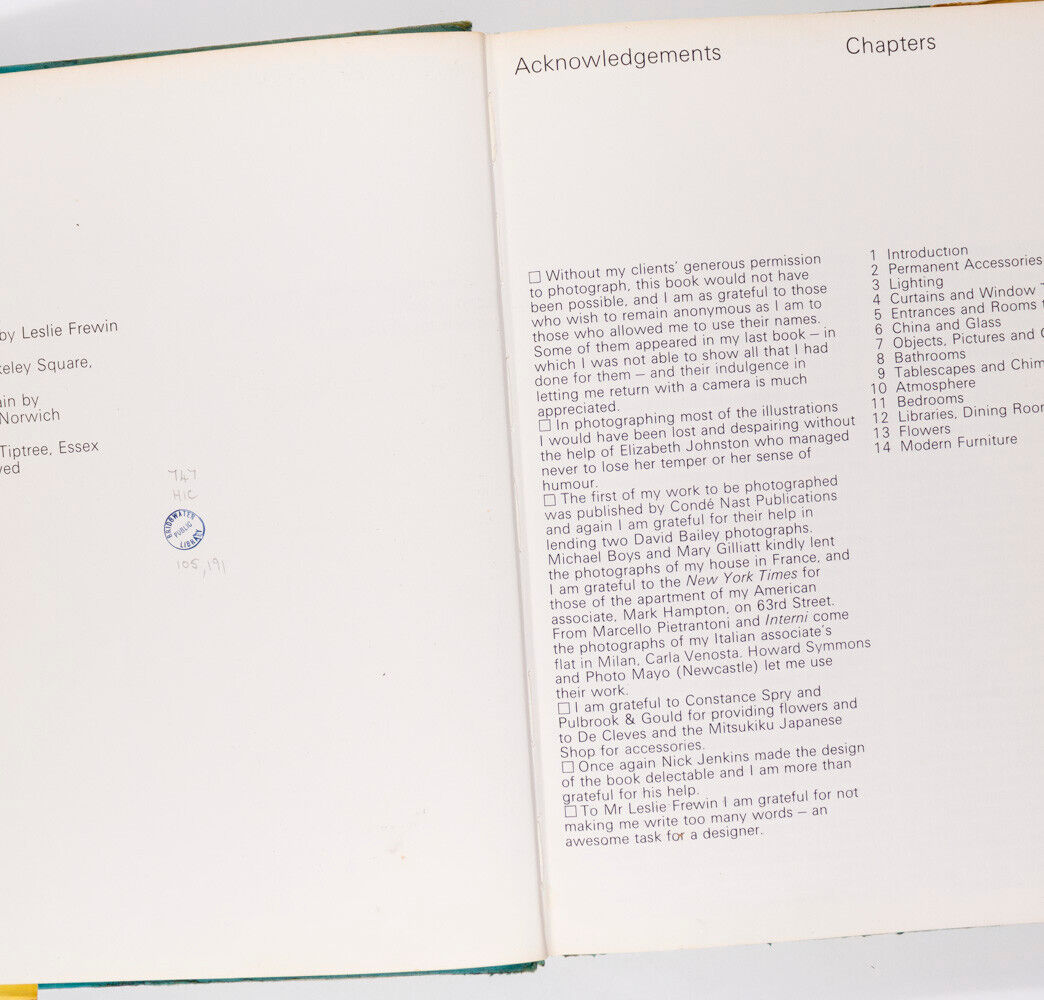 by Leslie Frewin
keley Square,
ain by
Norwich
Tiptree, Essex
ved
747
HIC
BRIDGWATER
PUBLIC
LIBRARY
105,191
Acknowledgements
□ Without my clients’ generous permission
to photograph, this book would not have
been possible, and I am as grateful to those
who wish to remain anonymous as I am to
those who allowed me to use their names.
Some of them appeared in my last book – in
which I was not able to show all that I had
done for them – and their indulgence in
letting me return with a camera is much
appreciated.
□ In photographing most of the illustrations
I would have been lost and despairing without
the help of Elizabeth Johnston who managed
never to lose her temper or her sense of
humour.
□ The first of my work to be photographed
was published by Condé Nast Publications
and again I am grateful for their help in
lending two David Bailey photographs.
Michael Boys and Mary Gilliatt kindly lent
the photographs of my house in France, and
I am grateful to the New York Times for
those of the apartment of my American
associate, Mark Hampton, on 63rd Street.
From Marcello Pietrantoni and Interni come
the photographs of my Italian associate’s
flat in Milan, Carla Venosta. Howard Symmons
and Photo Mayo (Newcastle) let me use
their work.
□ I am grateful to Constance Spry and
Pulbrook & Gould for providing flowers and
to De Cleves and the Mitsukiku Japanese
Shop for accessories.
□ Once again Nick Jenkins made the design
of the book delectable and I am more than
grateful for his help.
□ To Mr Leslie Frewin I am grateful for not
making me write too many words – an
awesome task for a designer.
Chapters
1 Introduction
2 Permanent Accessories
3 Lighting
4 Curtains and Window T
5 Entrances and Rooms
6 China and Glass
7 Objects, Pictures and
8 Bathrooms
9 Tablescapes and Chim
10 Atmosphere
11 Bedrooms
12 Libraries, Dining Roo
13 Flowers
14 Modern Furniture